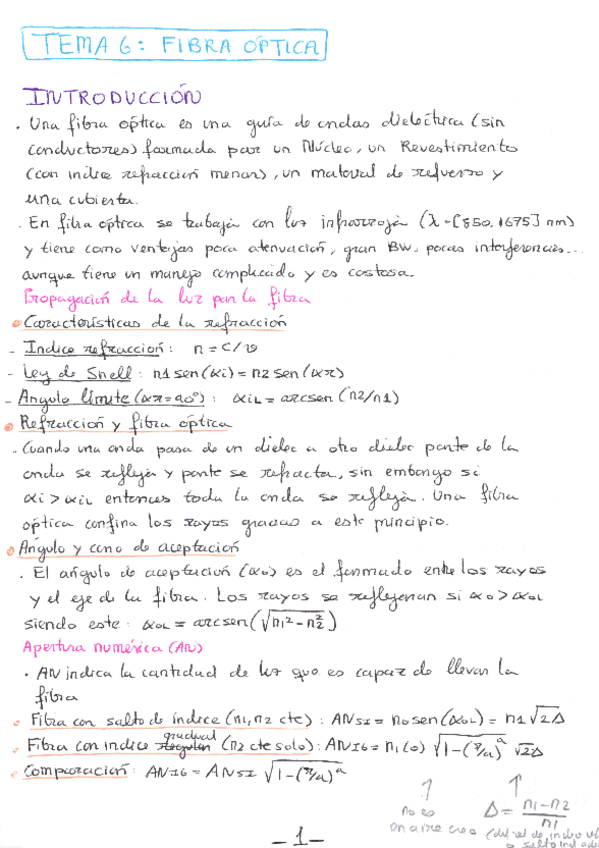 TEMA 6: FIBRA ÓPTICA
INTRODUCCIÓN
. Una fibra óptica es una guía de ondas dieléctrica (sin
conductores) formada por un Núcleo, un Revestimiento
(con indice refraccion menor), un material de refuerzo y
una cubierta.
. En fibra óptica se trabaja con luz infrarroja (λ-[850,1675] nm)
y tiene como ventajas poca atenuación, gran BW, pocas interferencias...
aunque tiene un manejo complicado y es costosa.
Propagación de la luz por la fibra
Características de la refracción
- Indice refraccion: n = c/v
- Ley de Snell: n1 sen(αi) = n2 sen(αr)
- Angulo límite (αr = 90°): αiL = arcsen (n2/n1)
Refraccion y fibra óptica
. Cuando una onda pasa de un dielec a otro dielec parte de la
onda se refleja y parte se refracta, sin embargo si
αi > αiL entonces toda la onda se refleja. Una fibra
óptica confina los rayos gracias a este principio.
Angulo y cono de aceptación
. El ángulo de aceptacion (α0) es el formado entre los rayos
y el eje de la fibra. Los rayos se reflejaran si α0 > α0L
siendo este: α0L = arcsen(√n1² - n2²)
Apertura numérica (AN)
. AN indica la cantidad de luz que es capaz de llevar la
fibra
Fibra con salto de índice (n1, n2 cte): ANSI = n0 sen(α0L) = n1 √2Δ
Fibra con indice gradual (n2 cte solo): ANIG = n1(0) √1-(r/a)^α √2Δ
Comparación: ANIG = ANSI √1-(r/a)^α
no es
Δ = n1-n2/n1
-1-